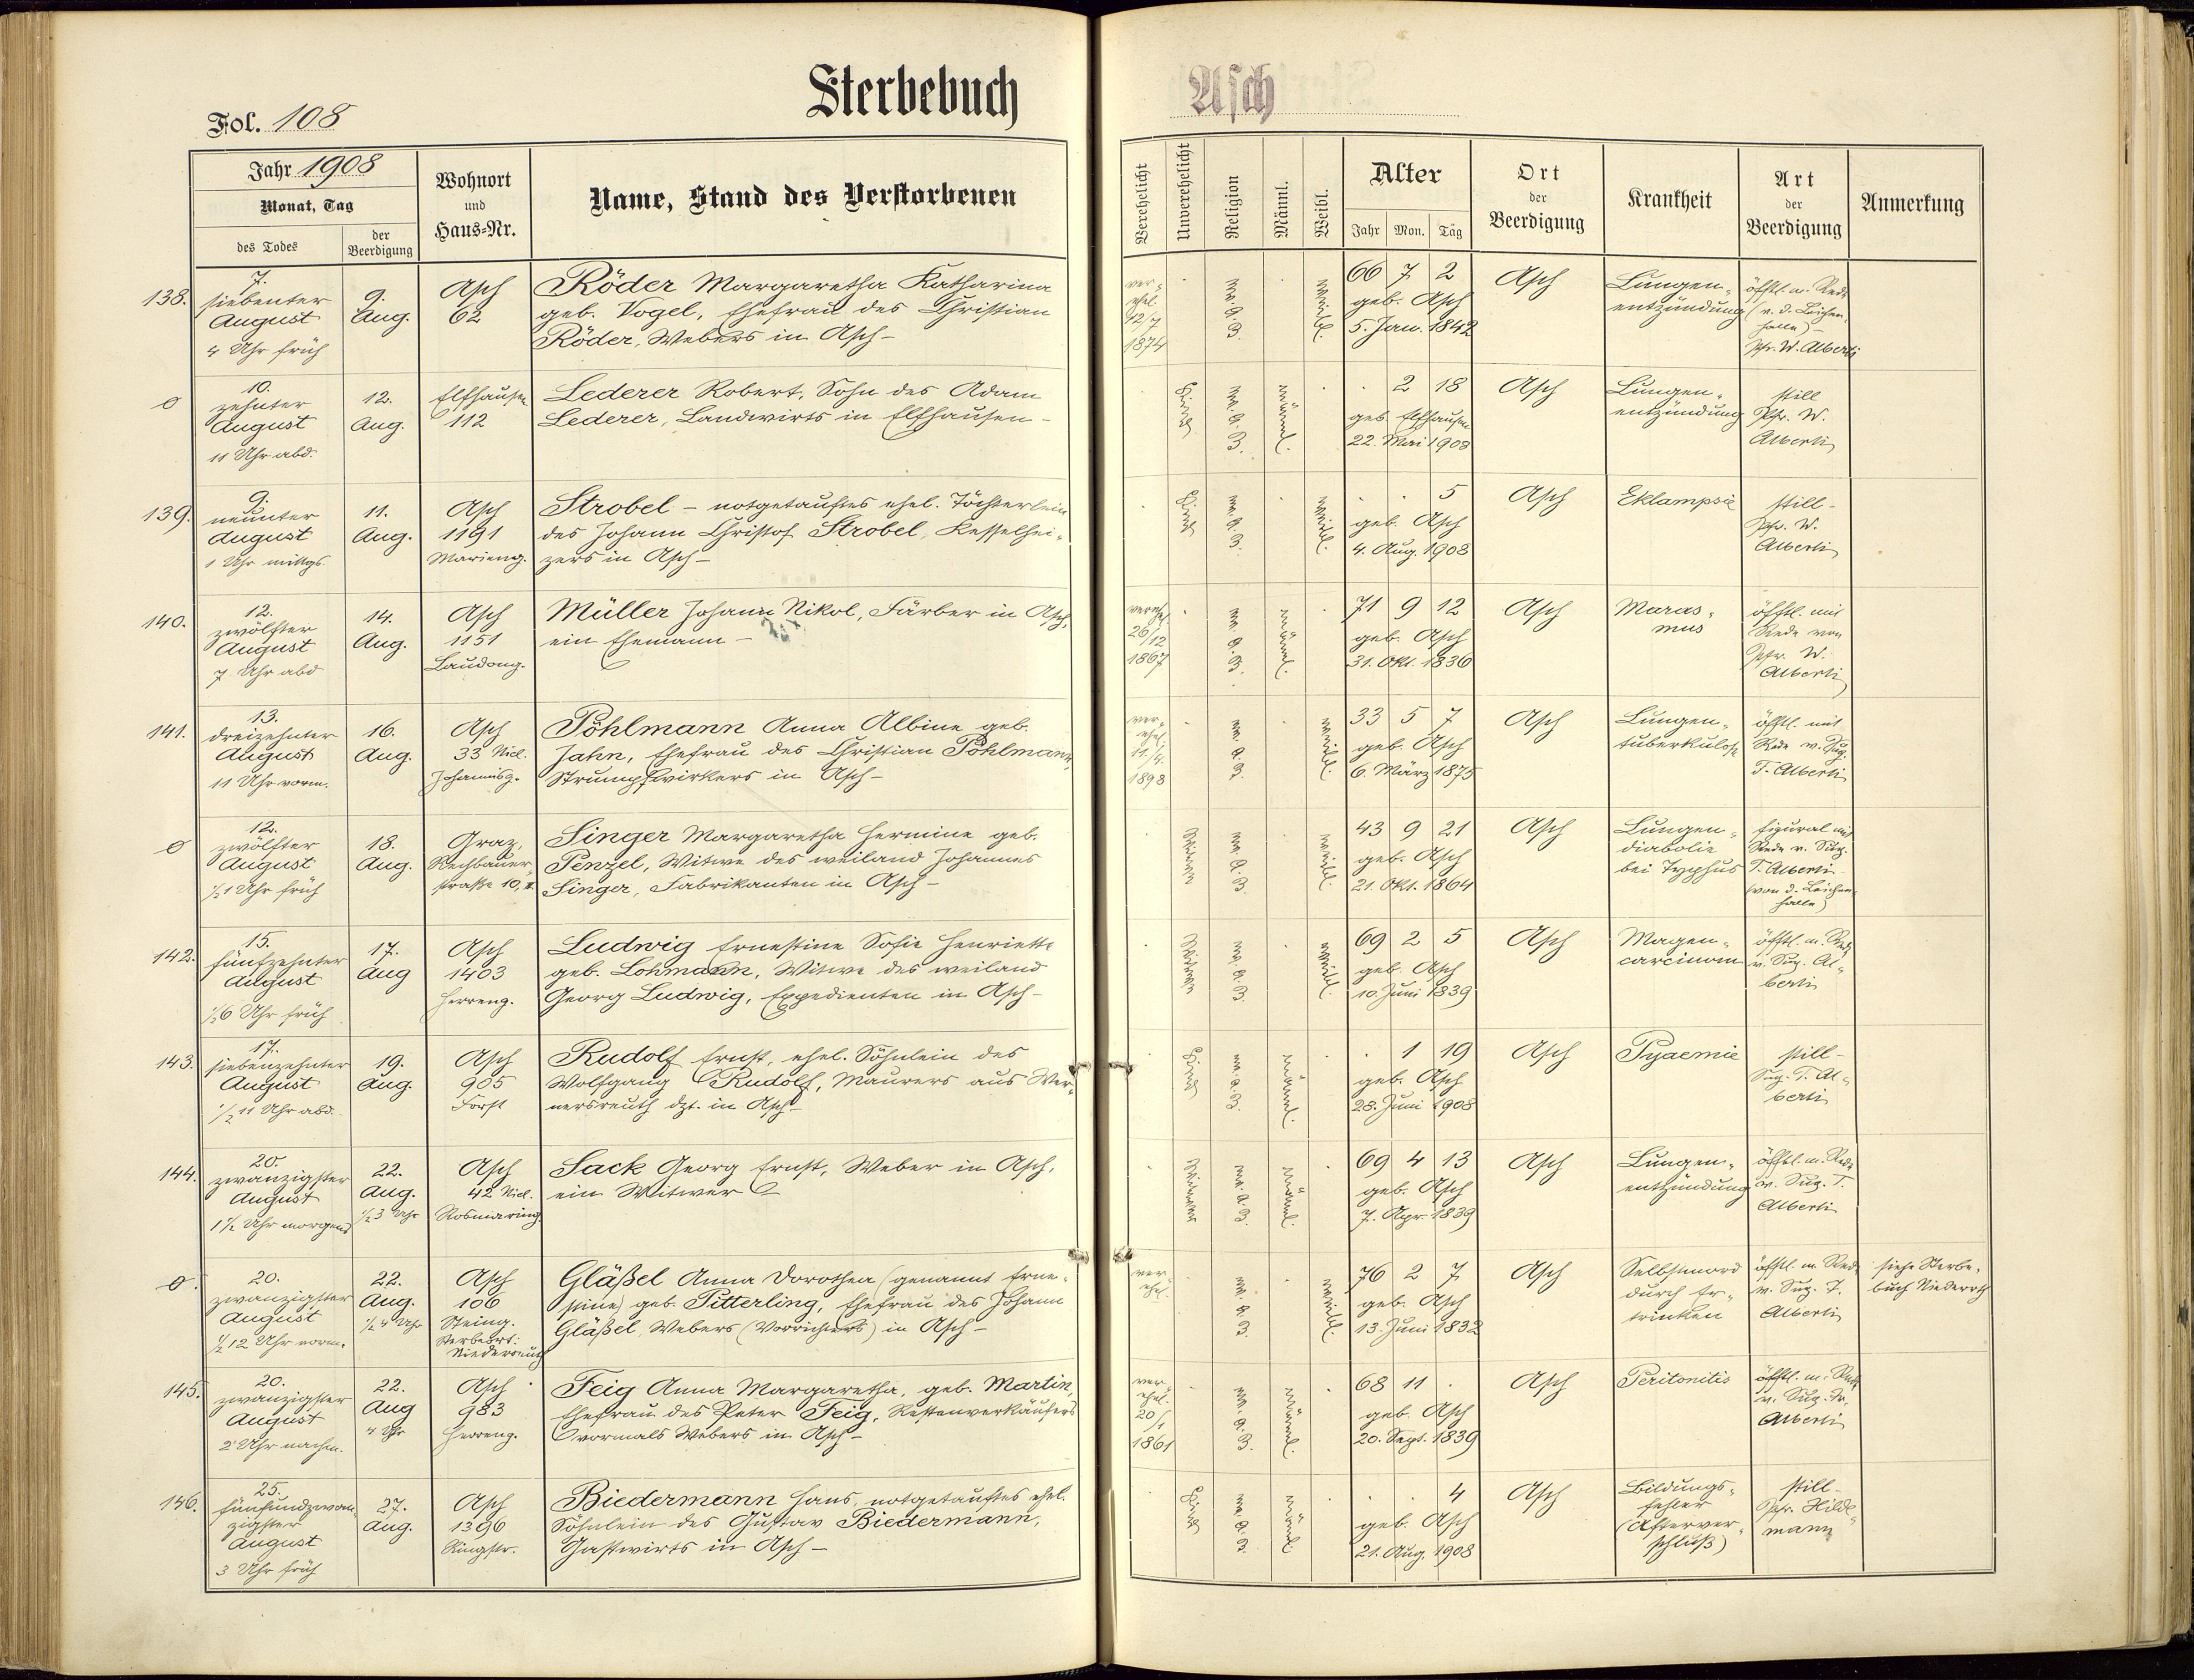 Sterbebuch
Asch
Fol. 108
Jahr 1908
Monat, Tag
des Todes
der Beerdigung
Wohnort
und
Haus=Nr.
Name, Stand des Verstorbenen
Verehelicht
Unverehelicht
Religion
Männl.
Weibl.
Alter
Jahr Mon. Täg
Ort
der
Beerdigung
Krankheit
Art
der
Beerdigung
Anmerkung
138.
7.
siebenter
August
4 Uhr früh
9.
Aug.
Asch
62
Röder Margaretha Katharina
geb. Vogel, Ehefrau des Christian
Röder, Webers in Asch –
ver=
ehel.
12/7
1874
ev. A. B.
weibl.
66 7 2
geb. Asch
5. Jan. 1842
Asch
Lungen=
entzündung
öfftl. m. Rede
(v. d. Leichen=
halle) –
Pfr. W. Alberti
10.
zehnter
August
11 Uhr abd.
12.
Aug.
Elfhausen
112
Lederer Robert, Sohn des Adam
Lederer, Landwirts in Elfhausen –
Kind
ev. A. B.
männl.
. 2 18
geb. Elfhausen
22. Mai 1908
Asch
Lungen=
entzündung
still
Pfr. W.
Alberti
139.
9.
neunter
August
1 Uhr mittgs.
11.
Aug.
Asch
1191
Marieng.
Strobel – notgetauftes ehel. Töchterlein
des Johann Christof Strobel, Kesselhei=
zers in Asch –
Kind
ev. A. B.
weibl.
. . 5
geb. Asch
4. Aug. 1908
Asch
Eklampsie
still –
Pfr. W.
Alberti
140.
12.
zwölfter
August
7 Uhr abd
14.
Aug.
Asch
1151
Laudong.
Müller Johann Nikol, Färber in Asch,
ein Ehemann –
verehel.
26/12
1867
ev. A. B.
männl.
71 9 12
geb. Asch
31. Okt. 1836
Asch
Maras=
mus
öfftl. mit
Rede von
Pfr. W.
Alberti
141.
13.
dreizehnter
August
11 Uhr vorm.
16.
Aug.
Asch
33 Nicl.
Johannisg.
Pöhlmann Anna Albine geb.
Jahn, Ehefrau des Christian Pöhlmann,
Strumpfwirkers in Asch –
ver=
ehel.
11/4.
1898
ev. A. B.
weibl.
33 5 7
geb. Asch
6. März 1875
Asch
Lungen=
tuberkulose
öfftl. mit
Rede v. Sup.
T. Alberti
12.
zwölfter
August
½1 Uhr früh
18.
Aug.
Graz,
Rechbauer=
straße 10, II.
Singer Margaretha Hermine geb.
Penzel, Witwe des weiland Johannes
Singer, Fabrikanten in Asch –
Witwe
ev. A. B.
weibl.
43 9 21
geb. Asch
21. Okt. 1864
Asch
Lungen=
bei Typhus
figural mit
Rede v. Sup.
T. Alberti
(von d. Leichen=
halle)
142.
15.
fünfzehnter
August
½6 Uhr früh
17.
Aug
Asch
1403
Herreng.
Ludwig Ernestine Sofie Henriette
geb. Lohmann, Witwe des weiland
Georg Ludwig, Expedienten in Asch –
Witwe
ev. A. B.
weibl.
69 2 5
geb. Asch
10. Juni 1839
Asch
Magen=
carcinom
öfftl. m. Rede
v. Sup. Al=
berti
143.
17.
siebenzehnter
August
½11 Uhr abd.
19.
Aug.
Asch
905
Forst
Rudolf Ernst, ehel. Söhnlein des
Wolfgang Rudolf, Maurers aus Wer=
nersreuth dzt. in Asch –
Kind
ev. A. B.
männl.
. 1 19
geb. Asch
28. Juni 1908
Asch
Pyaemie
still –
Sup. T. Al=
berti
144.
20.
zwanzigster
August
1½ Uhr morgens
22.
Aug.
½3 Uhr
Asch
42 Nicl.
Rosmaring.
Sack Georg Ernst, Weber in Asch,
ein Witwer
Witwer
ev. A. B.
männl.
69 4 13
geb. Asch
7. Apr. 1839
Asch
Lungen=
entzündung
öfftl. m. Rede
v. Sup. T.
Alberti
20.
zwanzigster
August
½12 Uhr vorm.
22.
Aug.
½4 Uhr
Asch
106
Steing.
Sterbeort:
Niederreuth
Gläßel Anna Dorothea (genannt Erne=
stine) geb. Pitterling, Ehefrau des Johann
Gläßel, Webers (Vorrichters) in Asch –
ver=
ehel.
ev. A. B.
weibl.
76 2 7
geb. Asch
13. Juni 1832
Asch
Selbstmord
durch Er=
trinken
öfftl. m. Rede
v. Sup. T.
Alberti
siehe Sterbe=
buch Niederrth
145.
20.
zwanzigster
August
2 Uhr nachm.
22.
Aug
4 Uhr
Asch
983
Herreng.
Feig Anna Margaretha, geb. Martin,
Ehefrau des Peter Feig, Restenverkäufers
vormals Webers in Asch –
ver=
ehel.
20/1
1861
ev. A. B.
männl.
68 11 .
geb. Asch
20. Sept. 1839
Asch
Peritonitis
öfftl. m. Rede
v. Sup. Tr.
Alberti
146.
25.
fünfundzwan=
zigster
August
3 Uhr früh
27.
Aug.
Asch
1396
Ringstr.
Biedermann Hans, notgetauftes ehel.
Söhnlein des Gustav Biedermann,
Gastwirts in Asch –
Kind
ev. A. B.
männl.
. . 4
geb. Asch
21. Aug. 1908
Asch
Bildungs=
fehler
(Afterver=
schluß)
still –
Pfr. Hilde=
mann